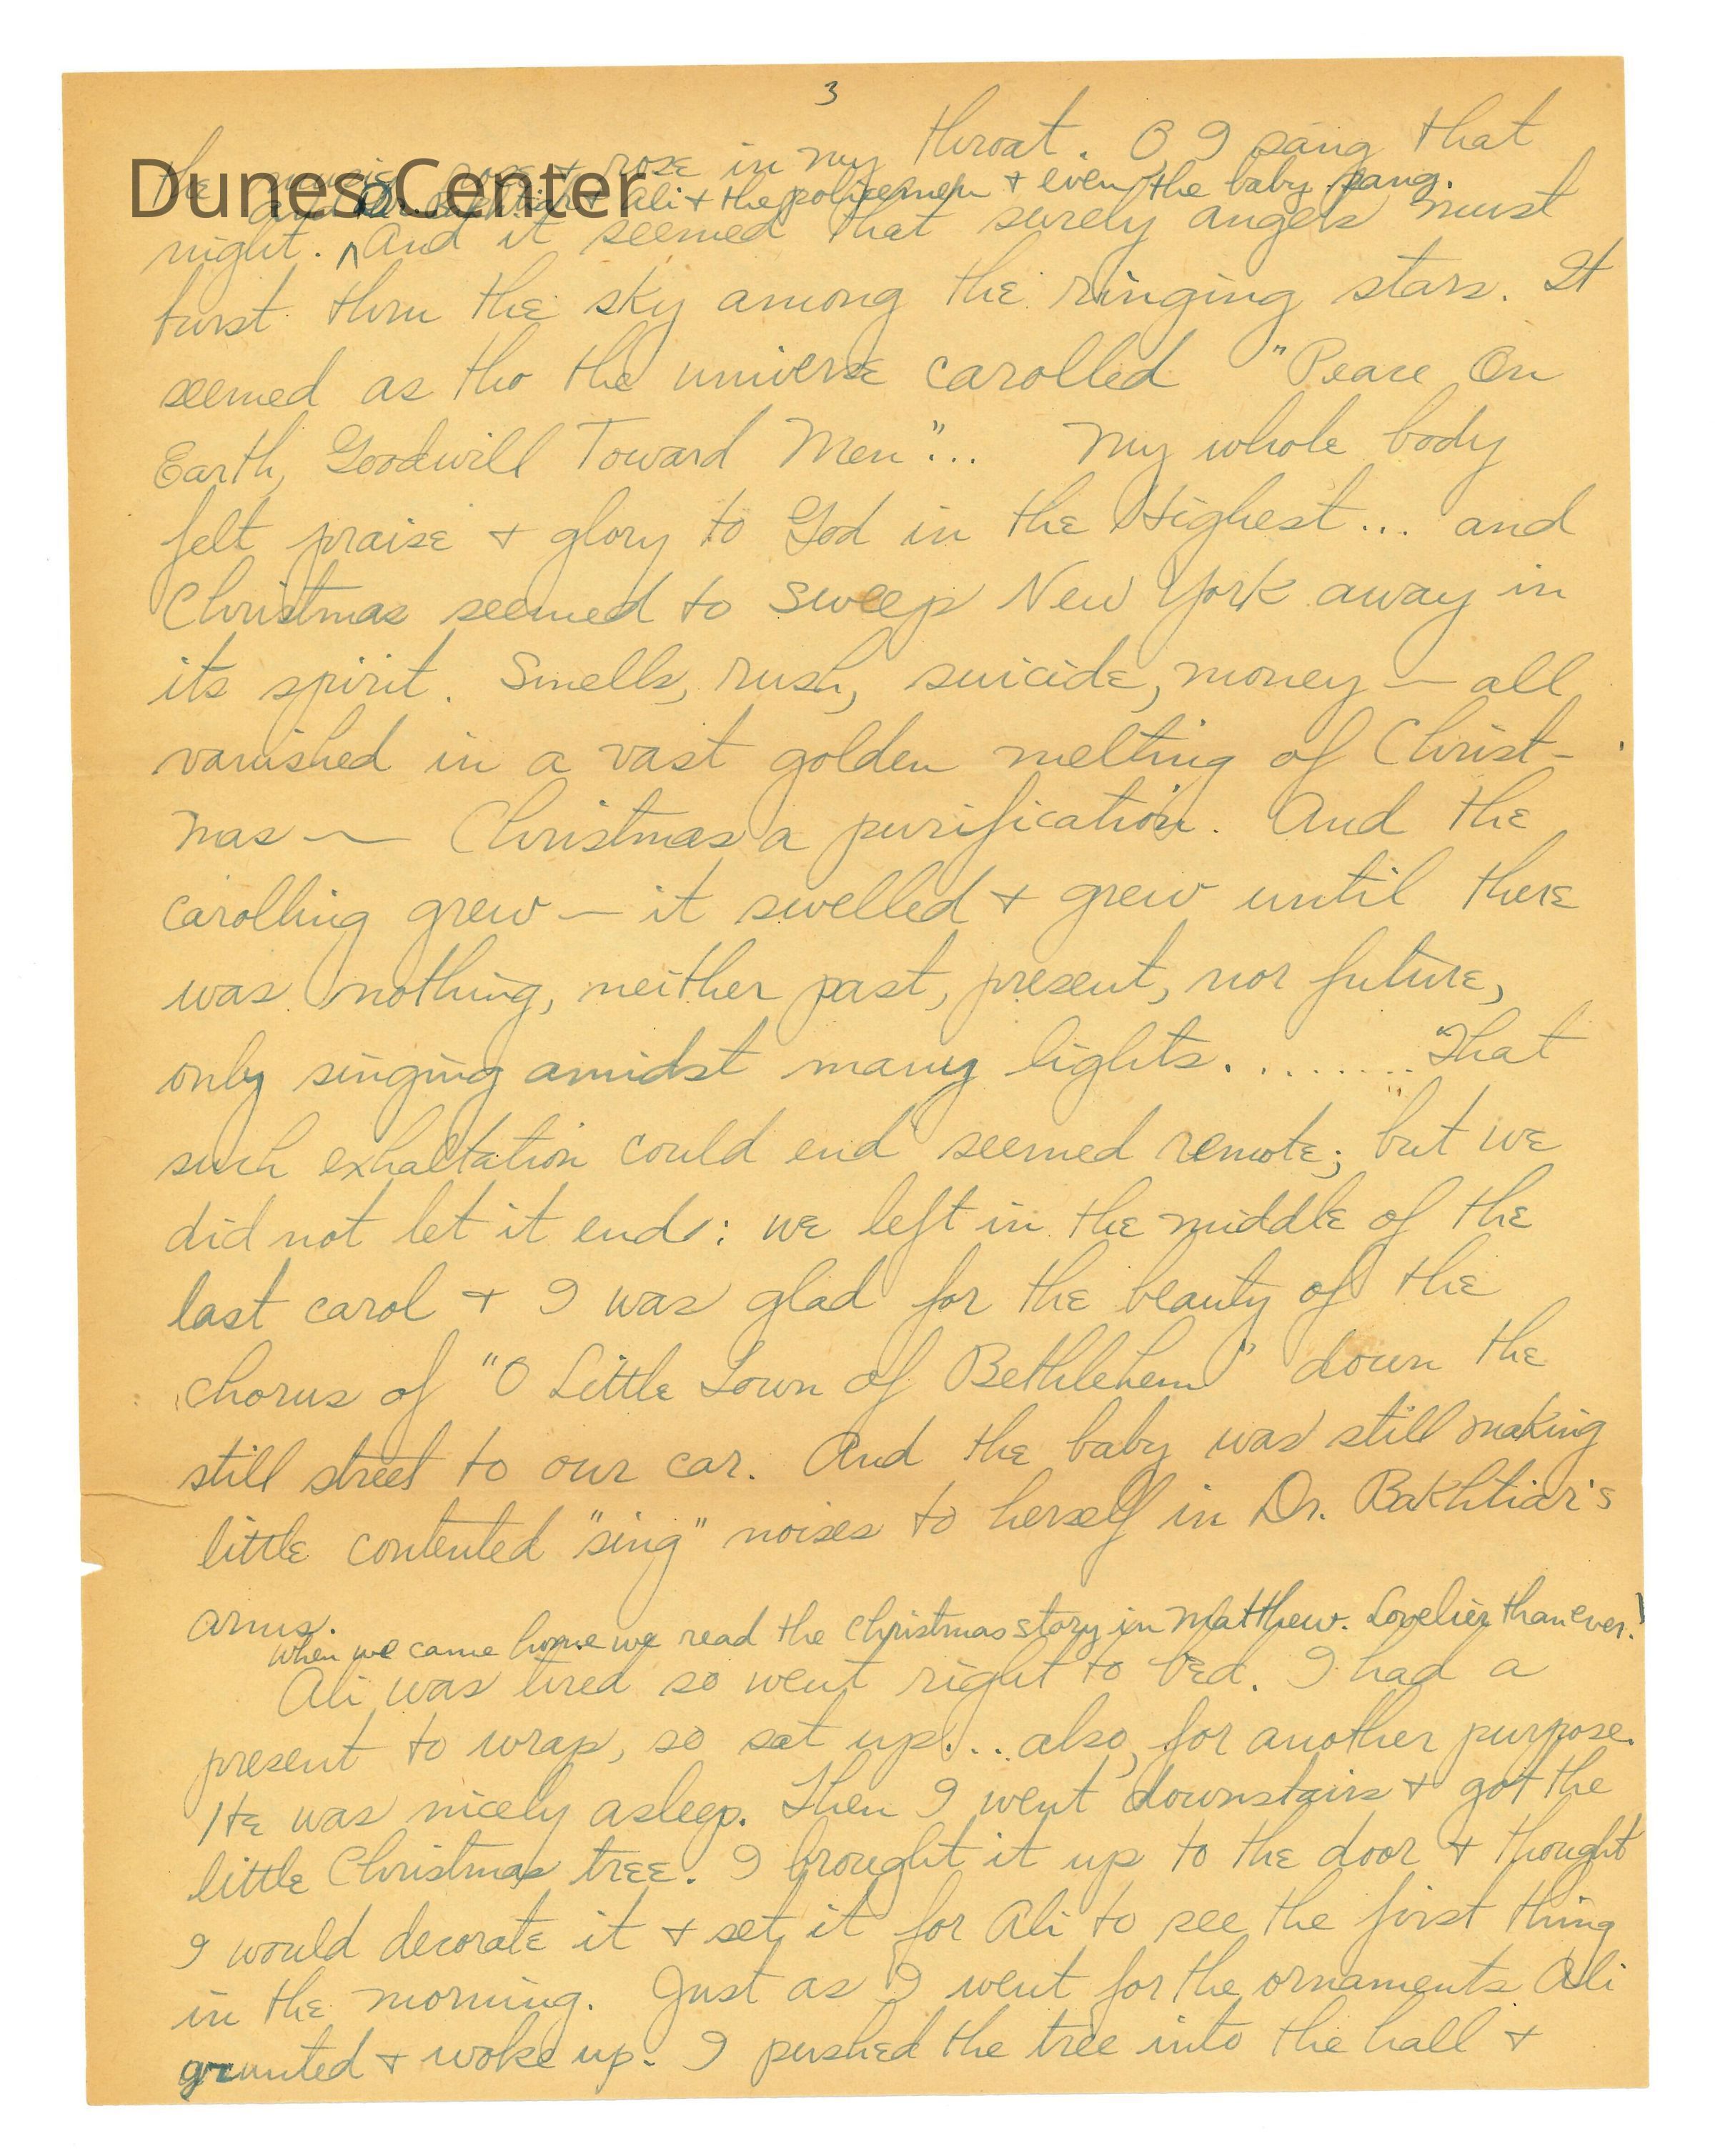 3
the music rose + rose in my throat. O, I sang that
and Dr. Bakhtiar + Ali + the policemen + even the baby sang.
Dunes Center
night. ^ And it seemed that surely angels must
burst thru the sky among the ringing stars. It
seemed as tho the universe carolled "Peace On
Earth, Goodwill Toward Men"... My whole body
felt praise + glory to God in the Highest... and
Christmas seemed to sweep New York away in
its spirit. Smells, rush, suicide, money — all
vanished in a vast golden melting of Christ-
mas — Christmas a purification. And the
carolling grew — it swelled + grew until there
was nothing, neither past, present, nor future,
only singing amidst many lights. ........ That
such exhaltation could end seemed remote; but we
did not let it end: we left in the middle of the
last carol + I was glad for the beauty of the
chorus of "O Little Town of Bethlehem" down the
still street to our car. And the baby was still making
little contented "sing" noises to herself in Dr. Bakhtiar's
arms.
When we came home we read the Christmas story in Matthew. Lovelier than ever!
Ali was tired so went right to bed. I had a
present to wrap, so sat up... also, for another purpose.
He was nicely asleep. Then I went downstairs + got the
little Christmas tree. I brought it up to the door + thought
I would decorate it + set it for Ali to see the first thing
in the morning. Just as I went for the ornaments Ali
grunted + woke up. I pushed the tree into the hall +